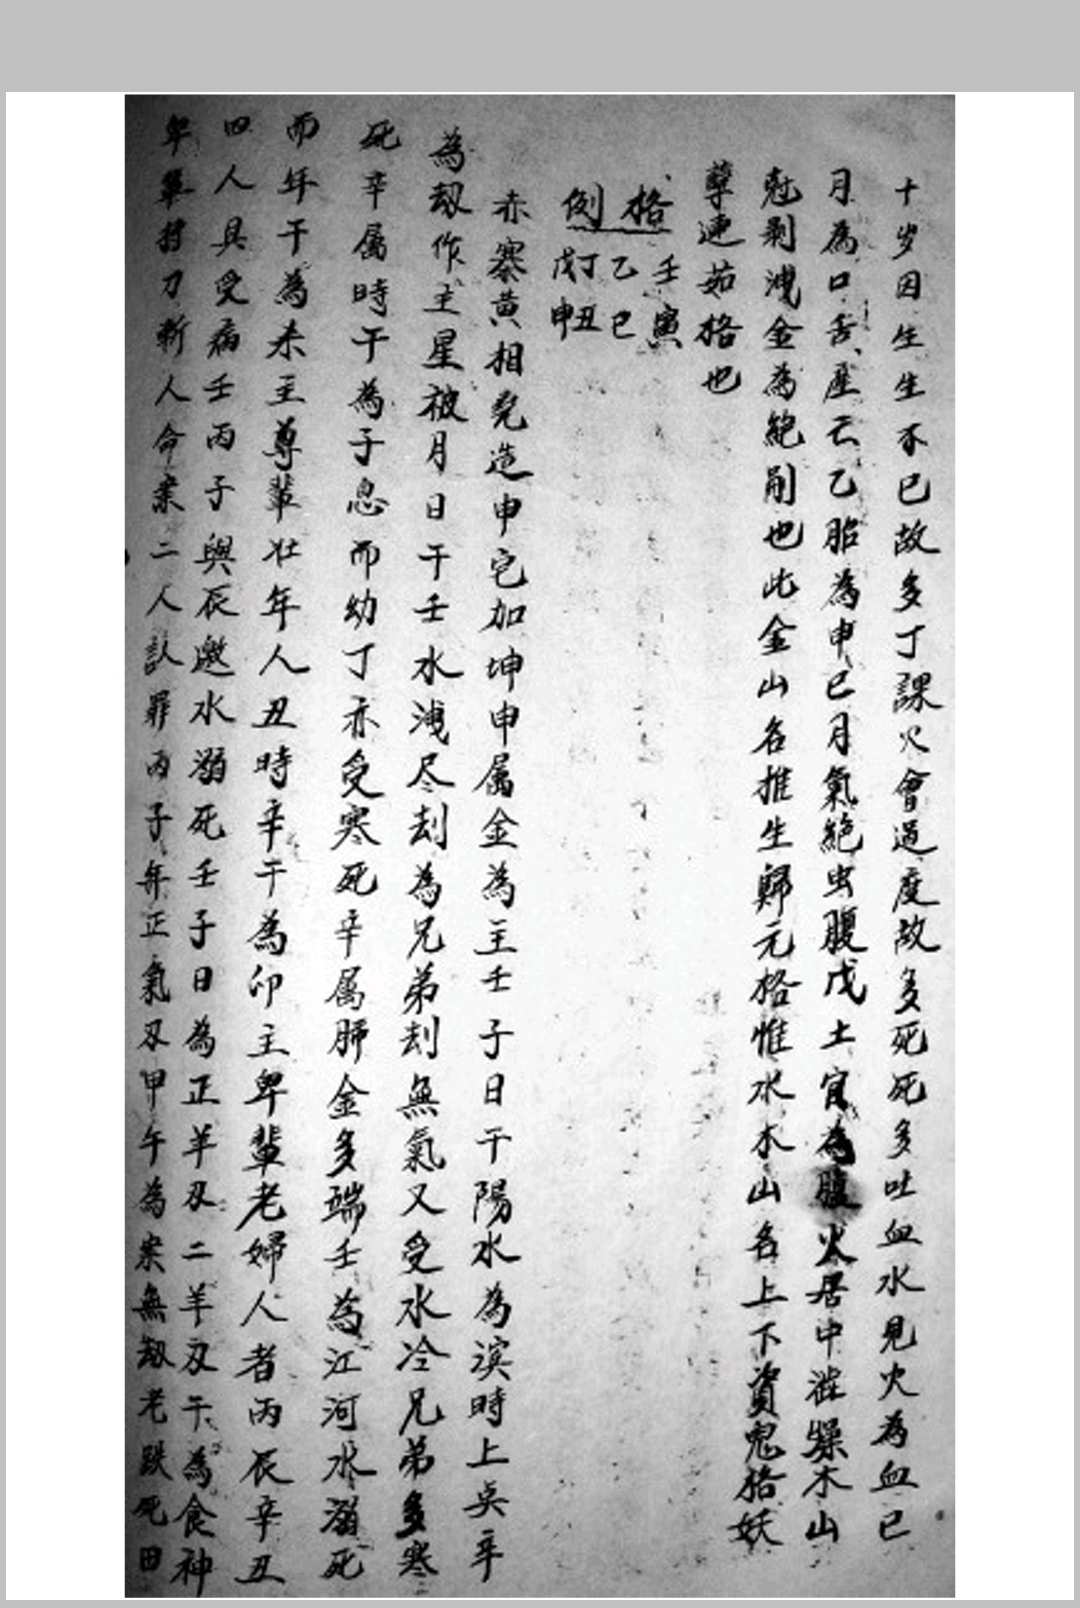 十岁因生生不已故多丁課火會過度故多死死多吐血水見火為血已
月為口舌座云乙胎為申已月氣絕虫腹戊土官為腹火居中滋燥木山
尅剝洩金為絕剐也此金山名推生歸元格惟水木山名上下資鬼格妖
孽連茹格也
格例 壬寅 乙巳 丁丑 戊申
赤寨黃相堯造申宅加坤申属金為主壬子日干陽水為滨時上矣辛
為刼作主星被月日干壬水洩尽刦為兄弟刦無氣又受水冷兄弟多寒
死辛属時干為子息而幼丁亦受寒死辛属肺金多端壬為江河水溺死
而年干為未主尊輩壮年人丑時辛干為卯主卑輩老婦人者丙辰辛丑
四人具受病壬丙子與辰邀水溺死壬子日為正羊刃二羊刃干為食神
卑輩持刀斬人命案二人認罪丙子年正氣刃甲午為案無刼老跌死田